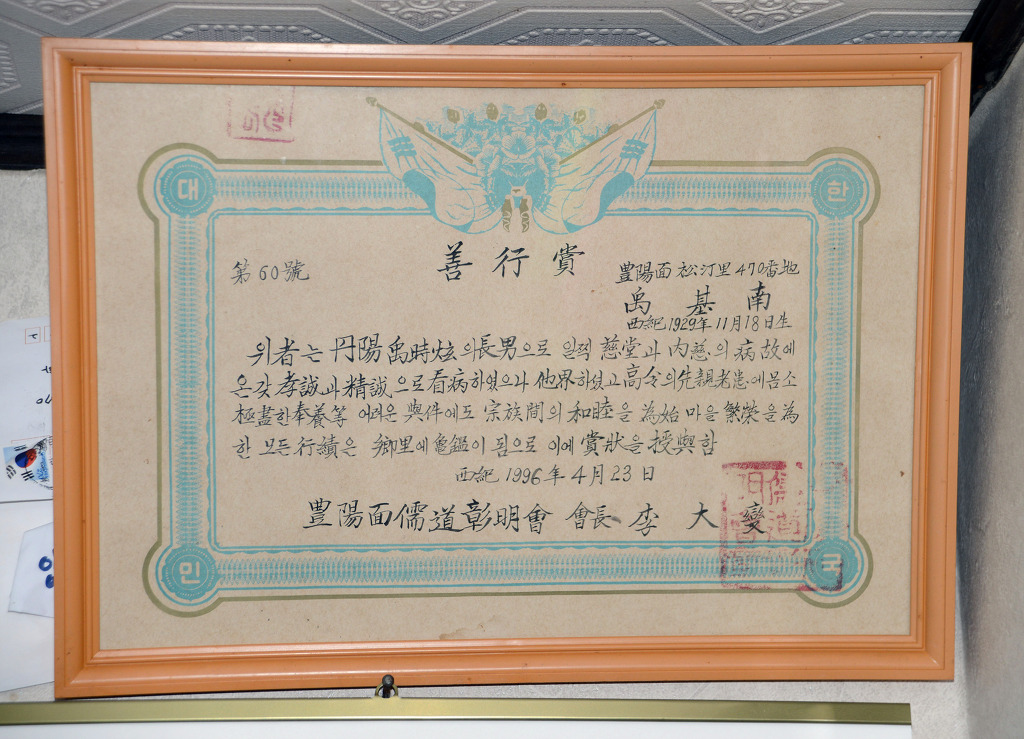 대 한
第60號 善行賞
豊陽面 松汀里 470番地
禹基南
西紀 1929年 11月 18日生
위者는 丹陽禹時炫의 長男으로 일찍 慈堂과 內慈의 病故에
온갖 孝誠과 精誠으로 看病하였으나 他界하였고 高令의 先親老患에 몸소
極盡한 奉養等 어려운 與件에도 宗族間의 和睦을 為始 마을 繁榮을 為
한 모든 行績은 鄕里에 龜鑑이 됨으로 이에 賞狀을 授與함
西紀 1996年 4月 23日
豊陽面儒道彰明會 會長 李大變
민 국